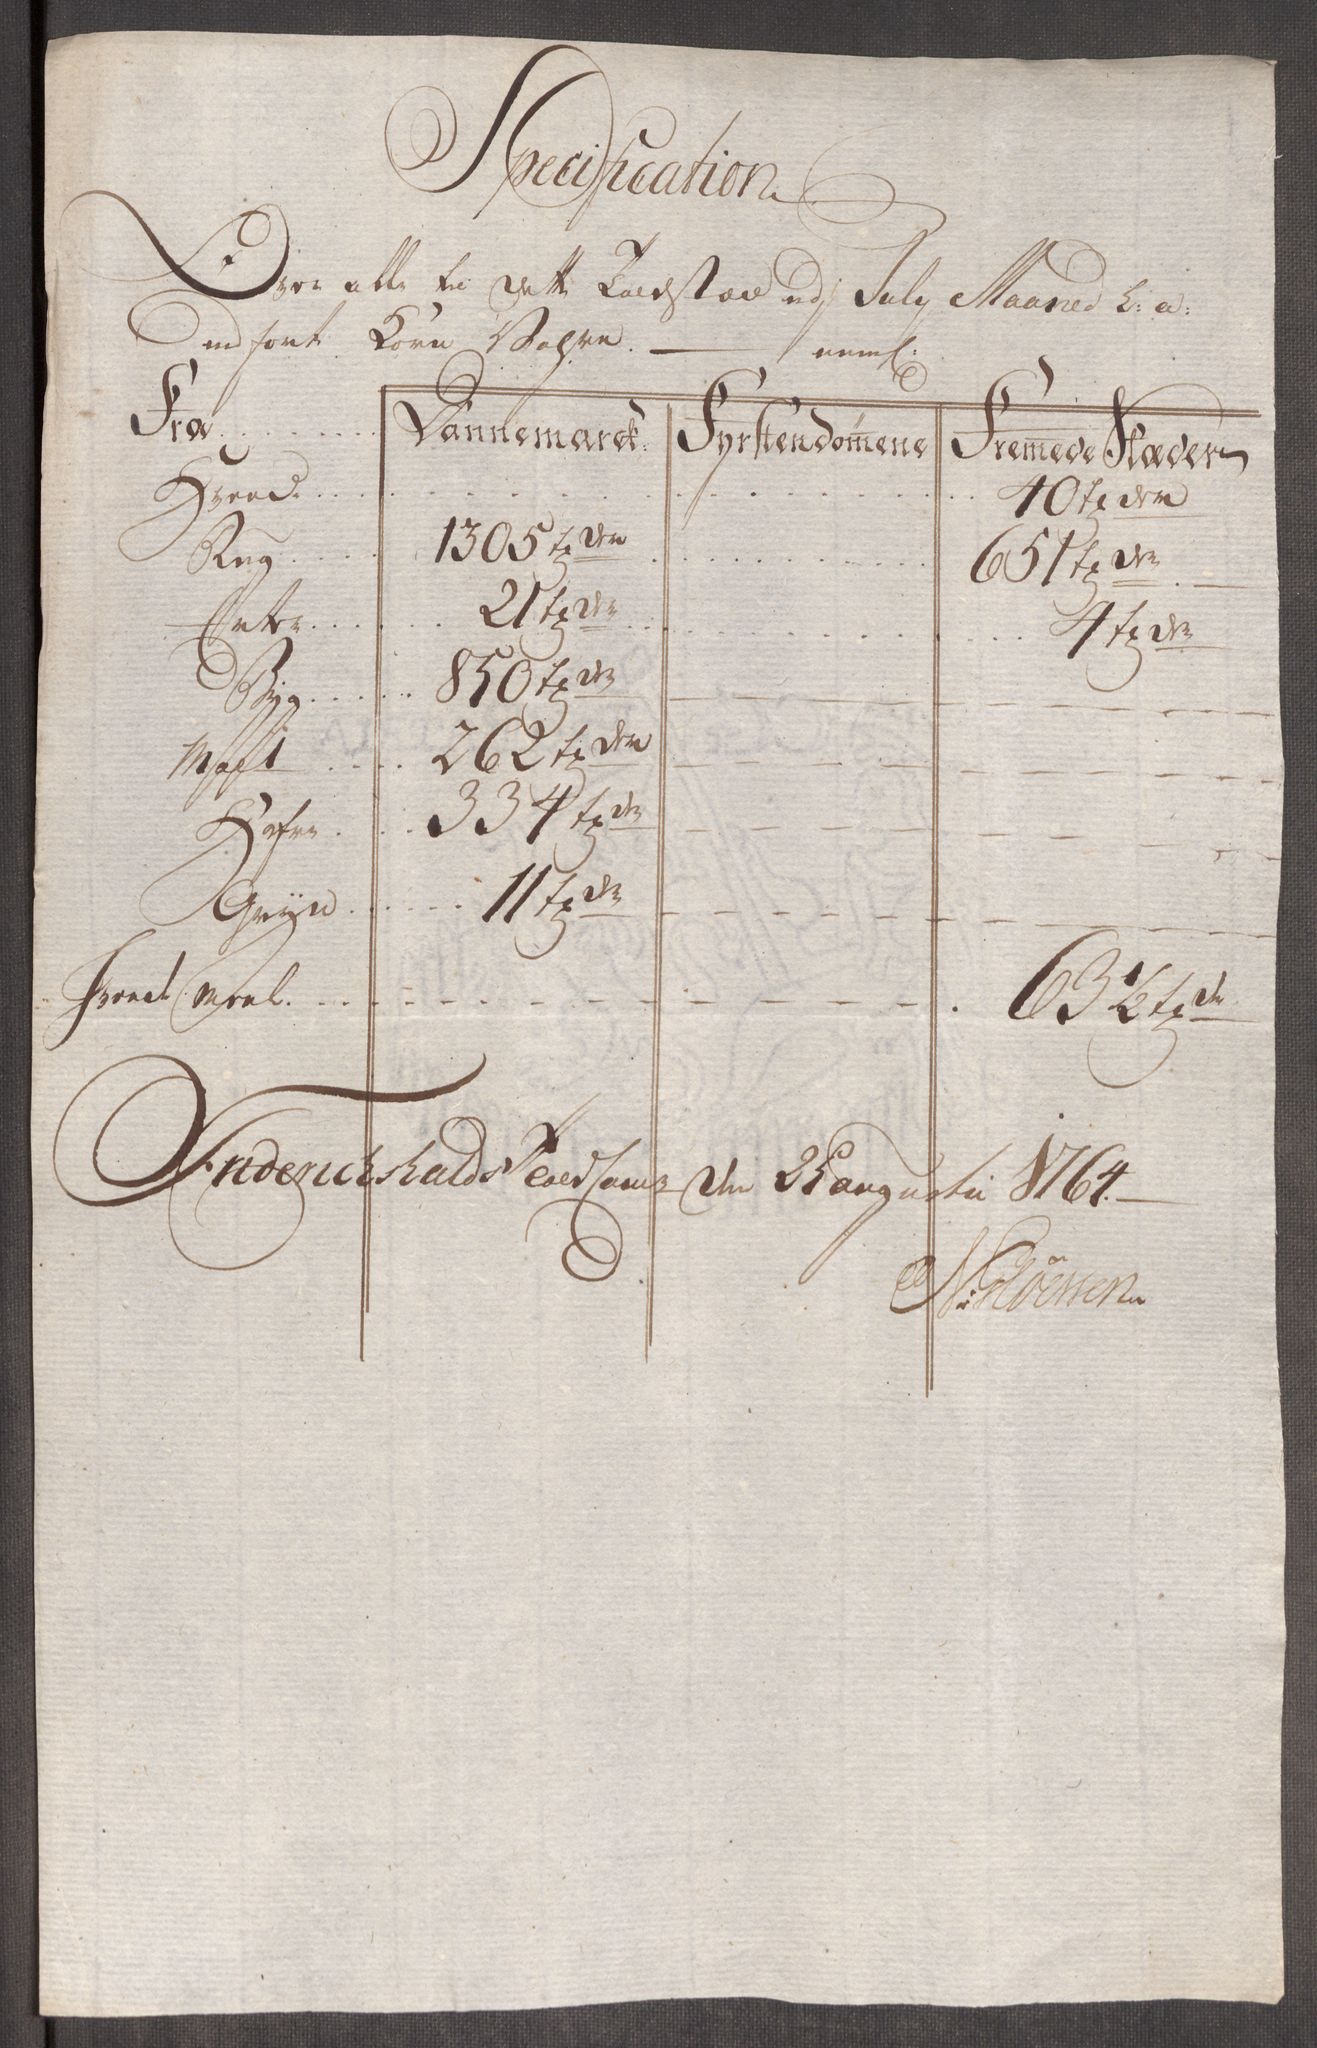 Specification
Over alle til dette Toldsted udj July Maaned h: a:
Indført Korn Vahre. — neml:
Fra Dannemarck: Fyrstendømene Fremede Stæder
Hvede 40 tr
Rug 1305 tr 651 tr
Erter 21 tr 4 tr
Byg 850 tr
Malt 262 tr
Hafre 334 tr
Gryn 11 tr
Hvede Meel. 63 1/2 tr
Friderichshalds Toldcamer den August 1764.